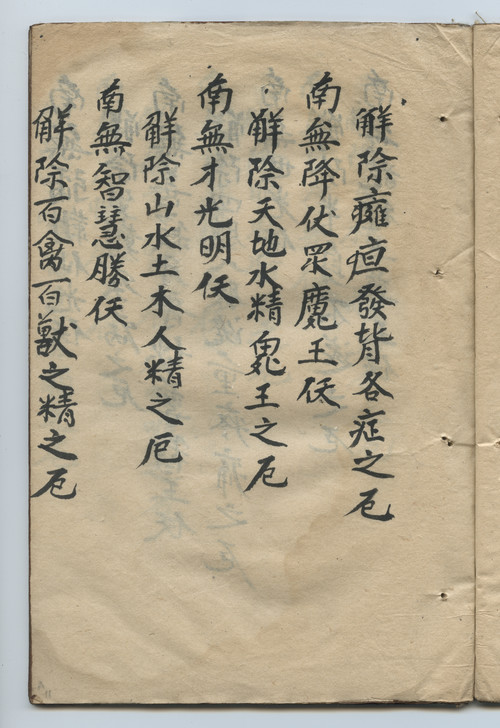 解除癰疽發背各症之厄
南無降伏眾魔王佛
解除天地水精鬼王之厄
南無才光明佛
解除山水土木人精之厄
南無智慧勝佛
解除百禽百獸之精之厄